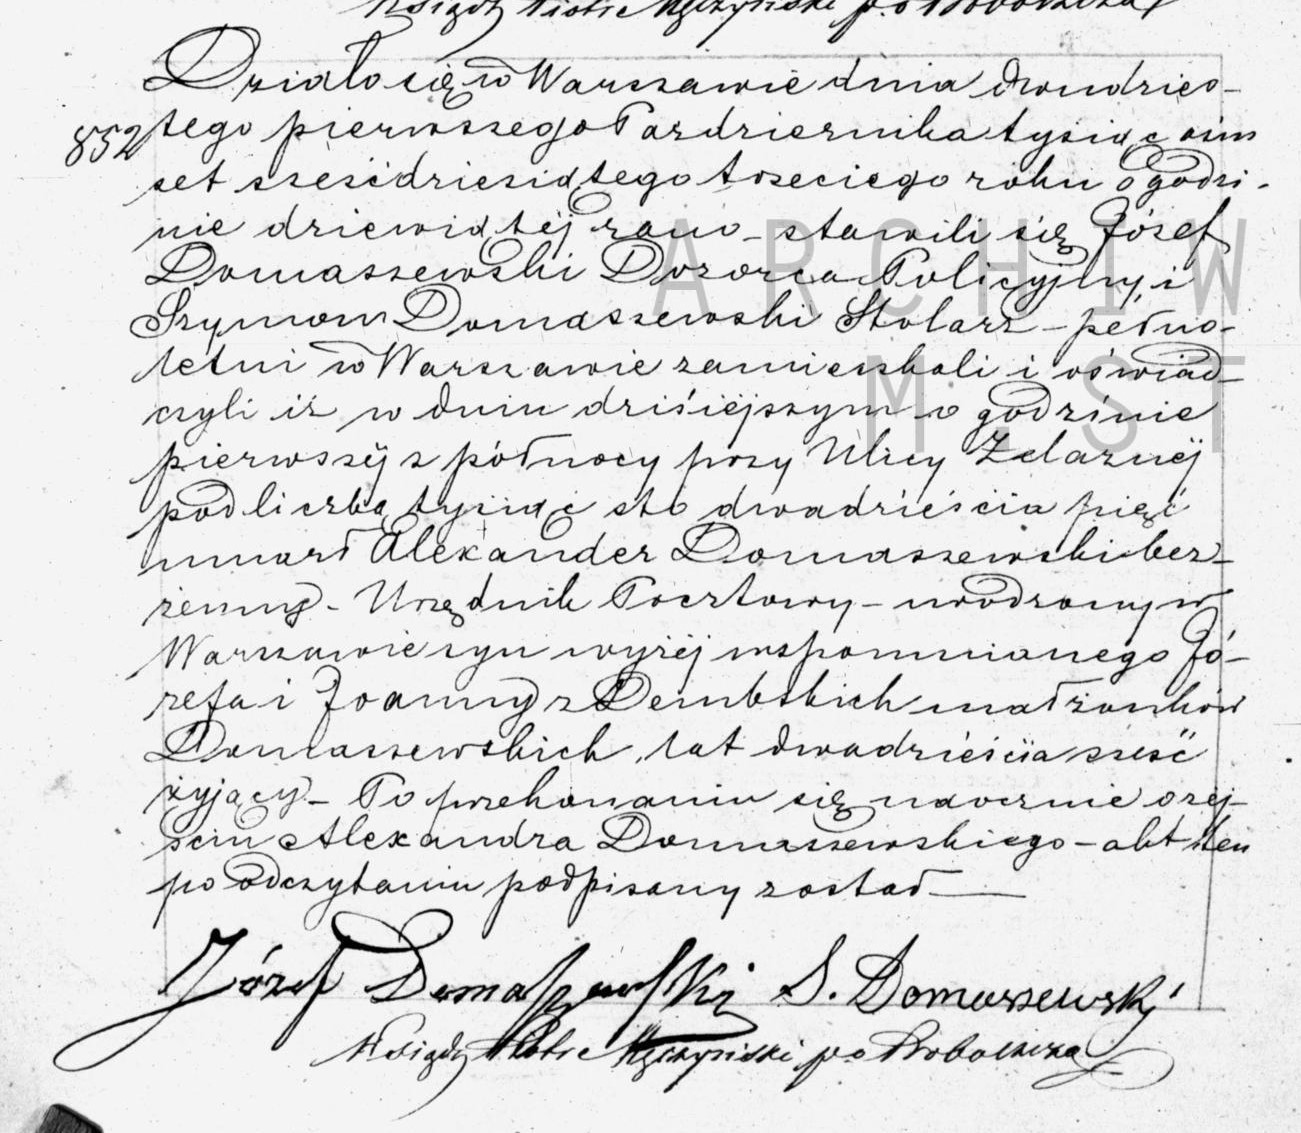 Ksiądz Piotr
Działo się w Warszawie dnia dwudzies-
852 tego pierwszego Pazdziernika tysiąc ośm
set sześćdziesiątego trzeciego roku o godzi-
nie dziewiątéj rano - stawili się Józef
Domaszewski Dozorca Policyjny i
Szymon Domaszewski Stolarz - pełno-
letni w Warszawie zamieszkali i oświad-
czyli iż w dniu dzisiéjszym o godzinie
pierwszéj z północy przy Ulicy Żelaznéj
pod liczbą tysiąc sto dwadzieścia pięć
umarł Alexander Domaszewski bez-
żenny - Urzędnik Pocztowy - urodzony w
Warszawie syn wyżéj wspomnianego Jó-
zefa i Joanny z Dembskich małżonków
Domaszewskich, lat dwadzieścia sześć
żyjący - Po przekonaniu się naocznie o zej-
ściu Alexandra Domaszewskiego - akt ten
po odczytaniu podpisany został
Józef Domaszewski S. Domaszewski
Ksiądz Piotr p. o Proboszcza
ARCHIW
M. ST